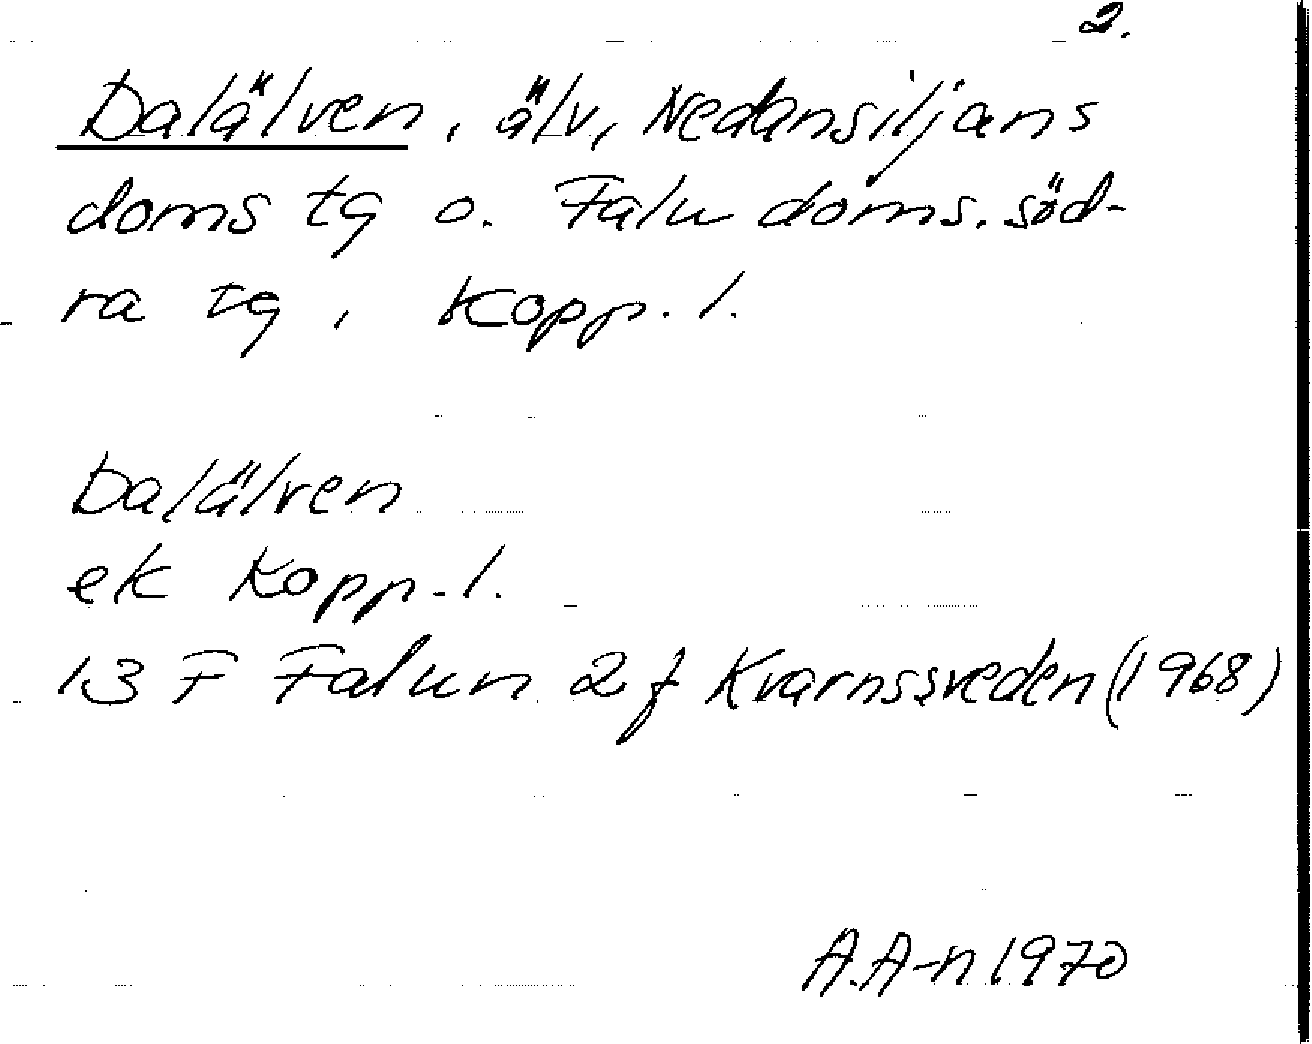 2.
Dalälven, älv, Nedansiljans
doms tg o. Falu doms. söd-
ra tg, Kopp. l.
Dalälven
ek Kopp. l.
13 F Falun 2 f Kvarnssveden (1968)
A.A-n 1970